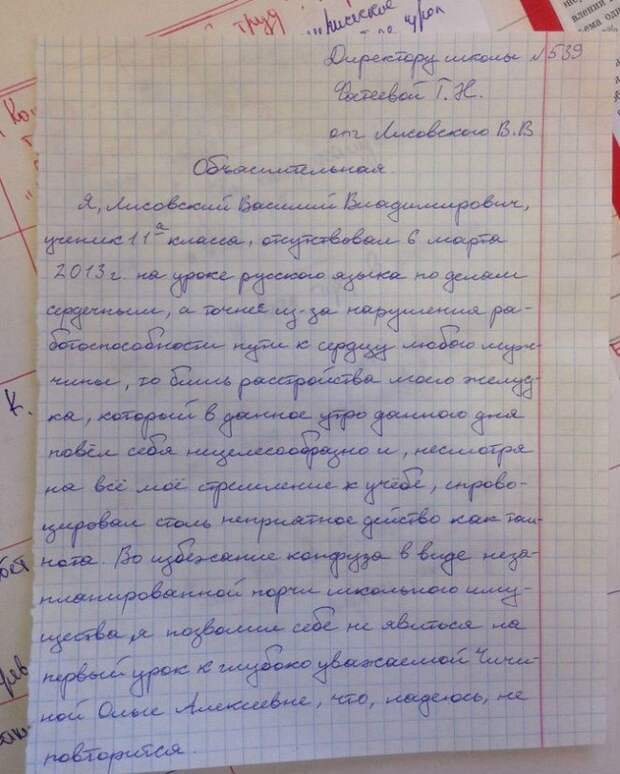 труд
Директору школы №539
Фатеевой Г.Н.
от Лисовского В.В
Объяснительная.
Я, Лисовский Василий Владимирович,
ученик 11а класса, отсутствовал 6 марта
2013 г. на уроке русского языка по делам
сердечным, а точнее из-за нарушения ра-
ботоспособности пути к сердцу любого муж-
чины, то бишь расстройства моего желуд-
ка, который в данное утро данного дня
повёл себя нецелесообразно и, несмотря
на всё моё стремление к учёбе, спрово-
цировал столь неприятное действо как тош-
нота. Во избежание конфуза в виде неза-
планированной порчи школьного иму-
щества, я позволил себе не явиться на
первый урок к глубоко уважаемой Чичи-
ной Ольге Алексеевне, что, надеюсь, не
повторится.